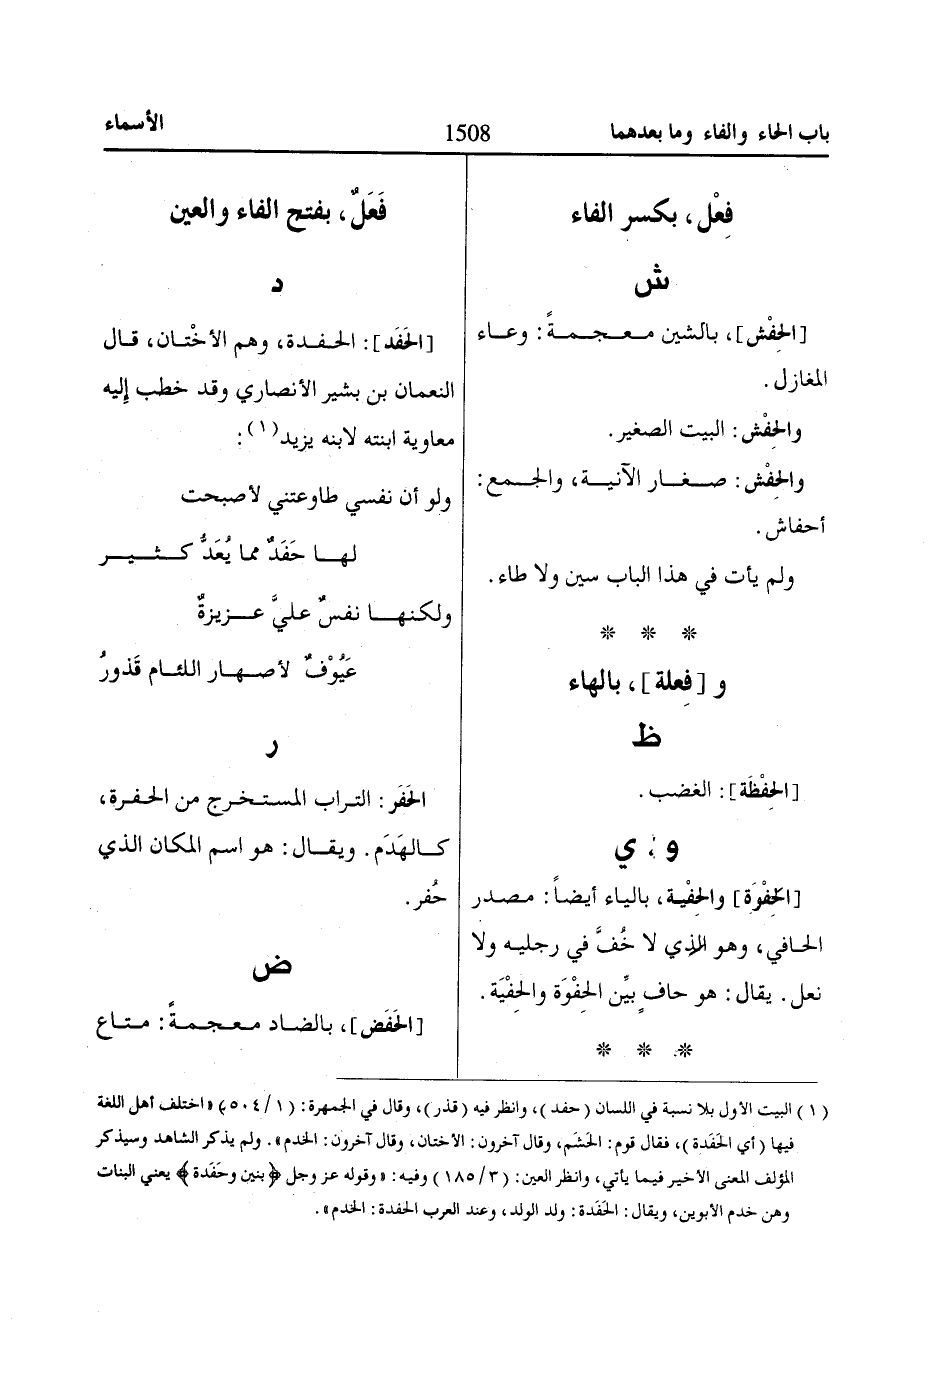 باب الحاء والفاء وما بعدهما
1508
الأسماء
فِعْل، بكسر الفاء
ش
[الحِفْش]، بالشين معجمةً: وعاء
المغازل.
والحِفْش: البيت الصغير.
والحِفْش: صغار الآنية، والجمع:
أحفاش.
ولم يأت في هذا الباب سين ولا طاء.
* * *
و [فِعلة]، بالهاء
ظ
[الحِفْظَة]: الغضب.
و ، ي
[الحِفْوَة] والحِفْية، بالياء أيضاً: مصدر
الحافي، وهو الذي لا خُفَّ في رجليه ولا
نعل. يقال: هو حافٍ بيِّن الحِفْوَة والحِفْيَة.
* * *
فَعَلٌ، بفتح الفاء والعين
د
[الحَفَد]: الحفدة، وهم الأخْتان، قال
النعمان بن بشير الأنصاري وقد خطب إليه
معاوية ابنته لابنه يزيد(١):
ولو أن نفسي طاوعتني لأصبحت
لها حَفَدٌ مما يُعَدُّ كثير
ولكنها نفسٌ عليَّ عزيزةٌ
عَيُوْفٌ لأصهار اللئام قَذورُ
ر
الحَفَر: التراب المستخرج من الحفرة،
كالهَدَم. ويقال: هو اسم المكان الذي
حُفر.
ض
[الحَفَض]، بالضاد معجمةً: متاع
(١) البيت الأول بلا نسبة في اللسان (حفد)، وانظر فيه (قذر)، وقال في الجمهرة: (١/٥٠٤) «اختلف أهل اللغة
فيها (أي الحَفَدة)، فقال قوم: الحَشَم، وقال آخرون: الأختان، وقال آخرون: الخدم». ولم يذكر الشاهد وسيذكر
المؤلف المعنى الأخير فيما يأتي، وانظر العين: (٣/١٨٥) وفيه: «وقوله عز وجل ﴿بنين وحَفَدة﴾ يعني البنات
وهن خدم الأبوين، ويقال: الحَفَدة: ولد الولد، وعند العرب الحفدة: الخدم».